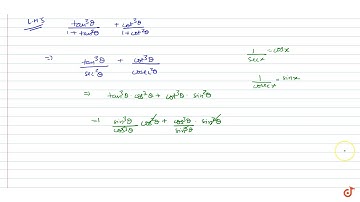 L.H.S tan³θ/1+tan²θ + cot³θ/1+cot²θ
⇒ tan³θ/sec²θ + cot³θ/cosec²θ
1/secx = cosx
1/cosecx = sinx
⇒ tan³θ · cos²θ + cot³θ · sin²θ
⇒ sin³θ/cos³θ · cos²θ + cos³θ/sin³θ · sin²θ